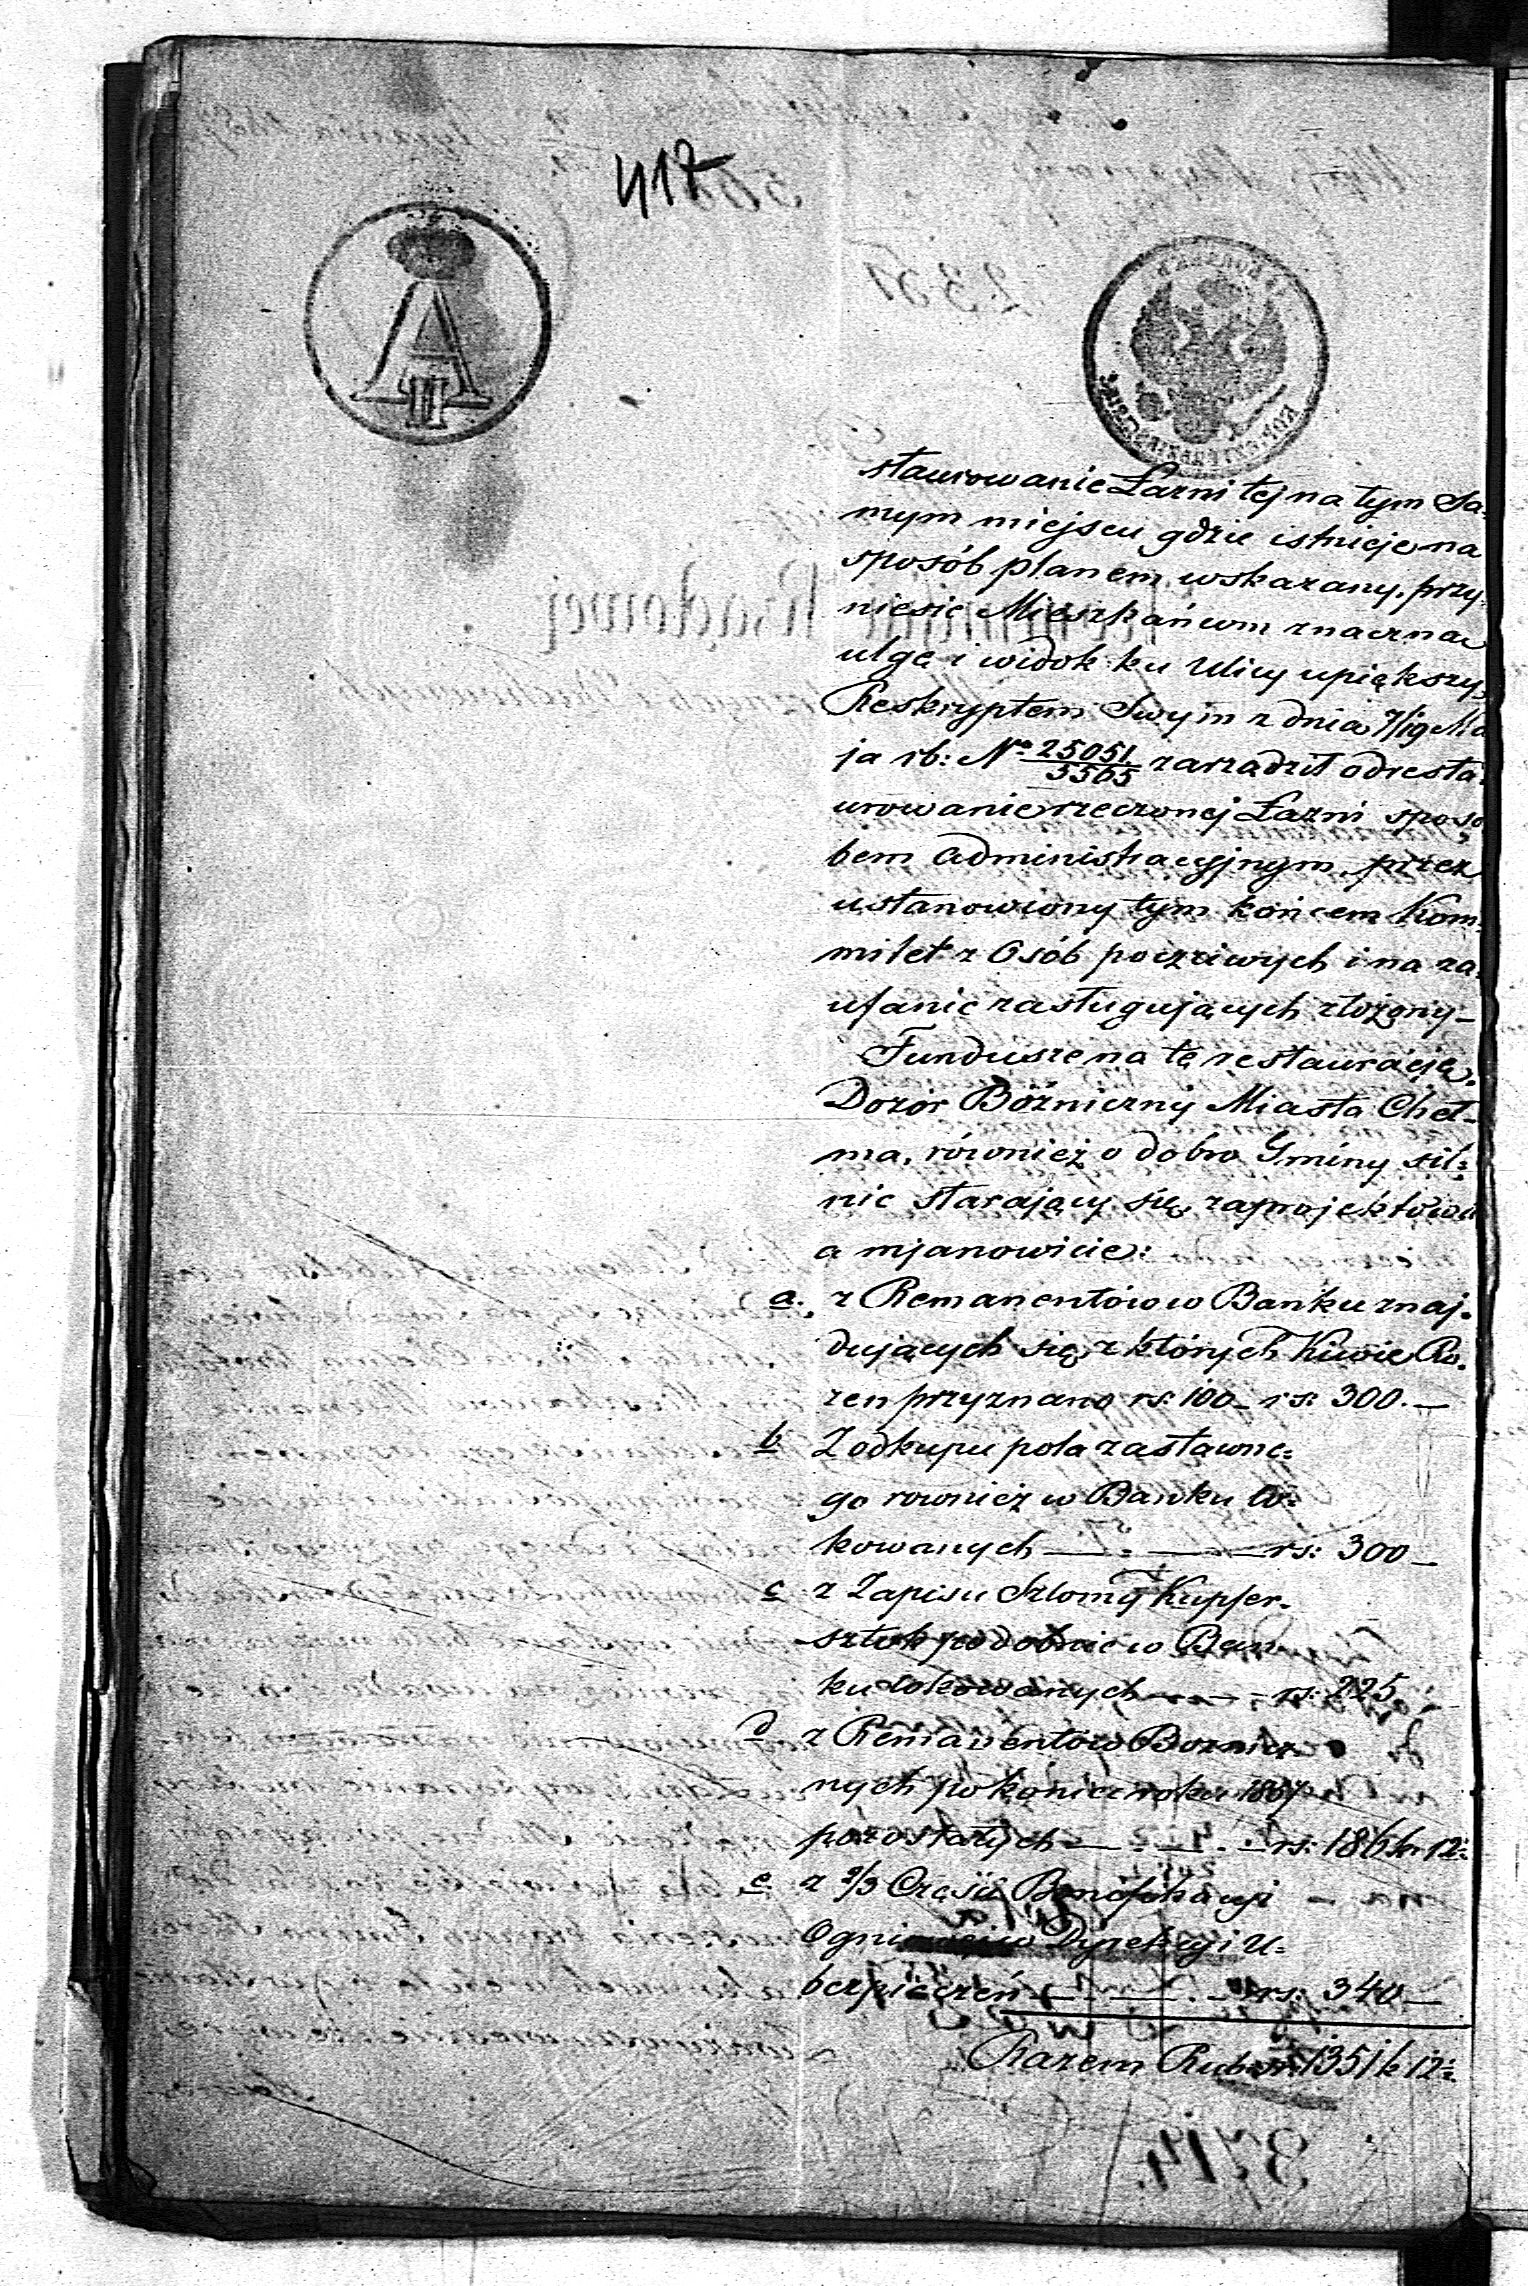 417
A
II
staurowanie Łazni tej na tym Sa-
mym miejscu gdzie istnieje na
sposób planem wskazany, przy-
niesie Mieszkańcom znaczną
ulgę i widok ku Ulicy upiększy,
Reskryptem Swym z dnia 7/19 Ma
ja rb: No 25051/5565 zarządził odresta-
urowanie rzeczonej Łazni sposo
bem administracyjnym, przez
ustanowiony tym końcem Kom-
mitet z Osób poczciwych i na za-
ufanie zasługujących złożony –
Fundusze na tę restauracją.
Dozór Bóżniczny Miasta Cheł-
ma, również o dobro Gminy sil-
nie starający się, zaprojektował
a mjanowicie:
a. z Remanentów w Banku znaj-
dujących się, z których Kiwie Ro-
zen przyznano rs: 100 – rs: 300. –
b Z odkupu pola zastawne-
go rownież w Banku lo-
kowanych — . — rs: 300 –
c z Zapisu Szlomy Kupfer-
sztok podobnie w Ban-
ku lokowanych — . — rs: 225
d z Remanentów Bożnicz-
nych po koniec roku 1867
pozostałych — . — . – rs: 186 k 12½
e z 2/3 Części Bonifikacyi
Dyrekcyi U-
bezpieczeń — . — . — rs: 340 –
Razem Rubsr: 1351 k 12½